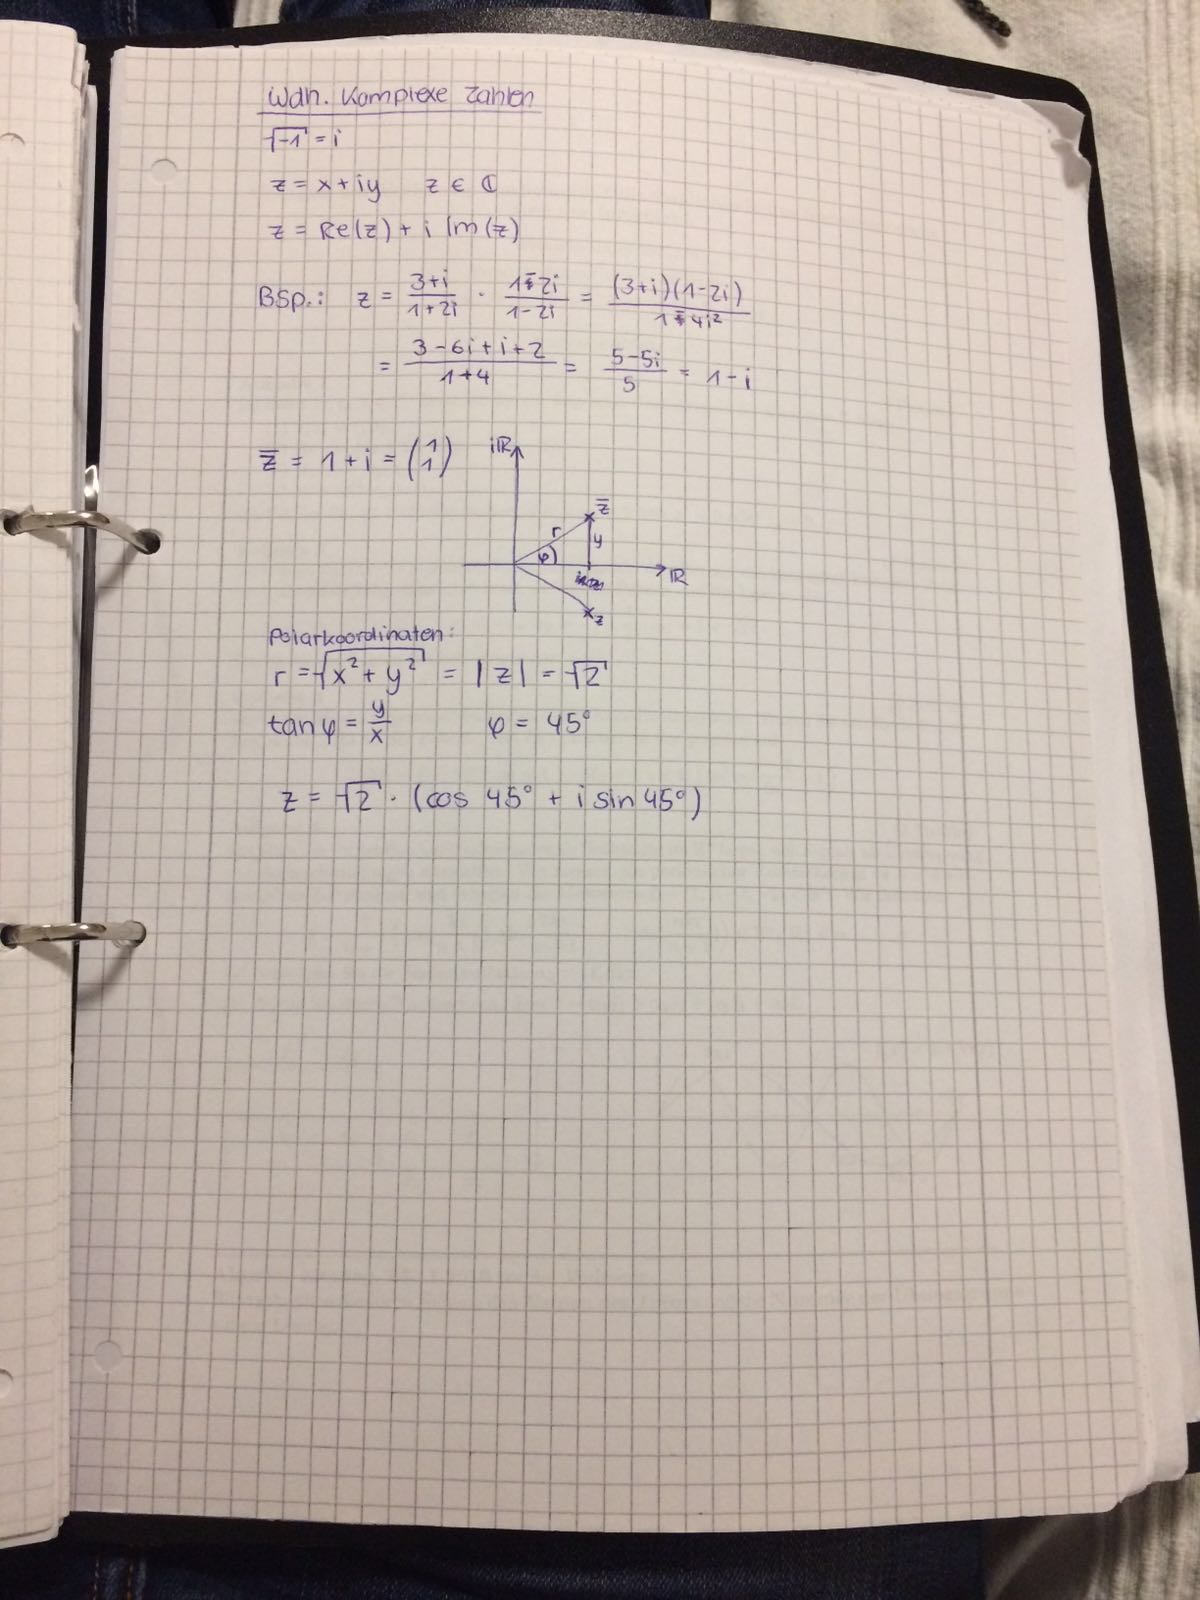 Wdh. Komplexe Zahlen
√-1 = i
z = x + iy   z ∈ ℂ
z = Re(z) + i Im(z)
BSp.: z = (3+i)/(1+2i) · (1-2i)/(1-2i) = ((3+i)(1-2i))/(1-4i²)
= (3-6i+i+2)/(1+4) = (5-5i)/5 = 1-i
z̅ = 1 + i = (1 1)
iℝ
z̅
r
y
φ
ℝ
z
Polarkoordinaten:
r = √(x² + y²) = |z| = √2
tan φ = y/x   φ = 45°
z = √2 · (cos 45° + i sin 45°)